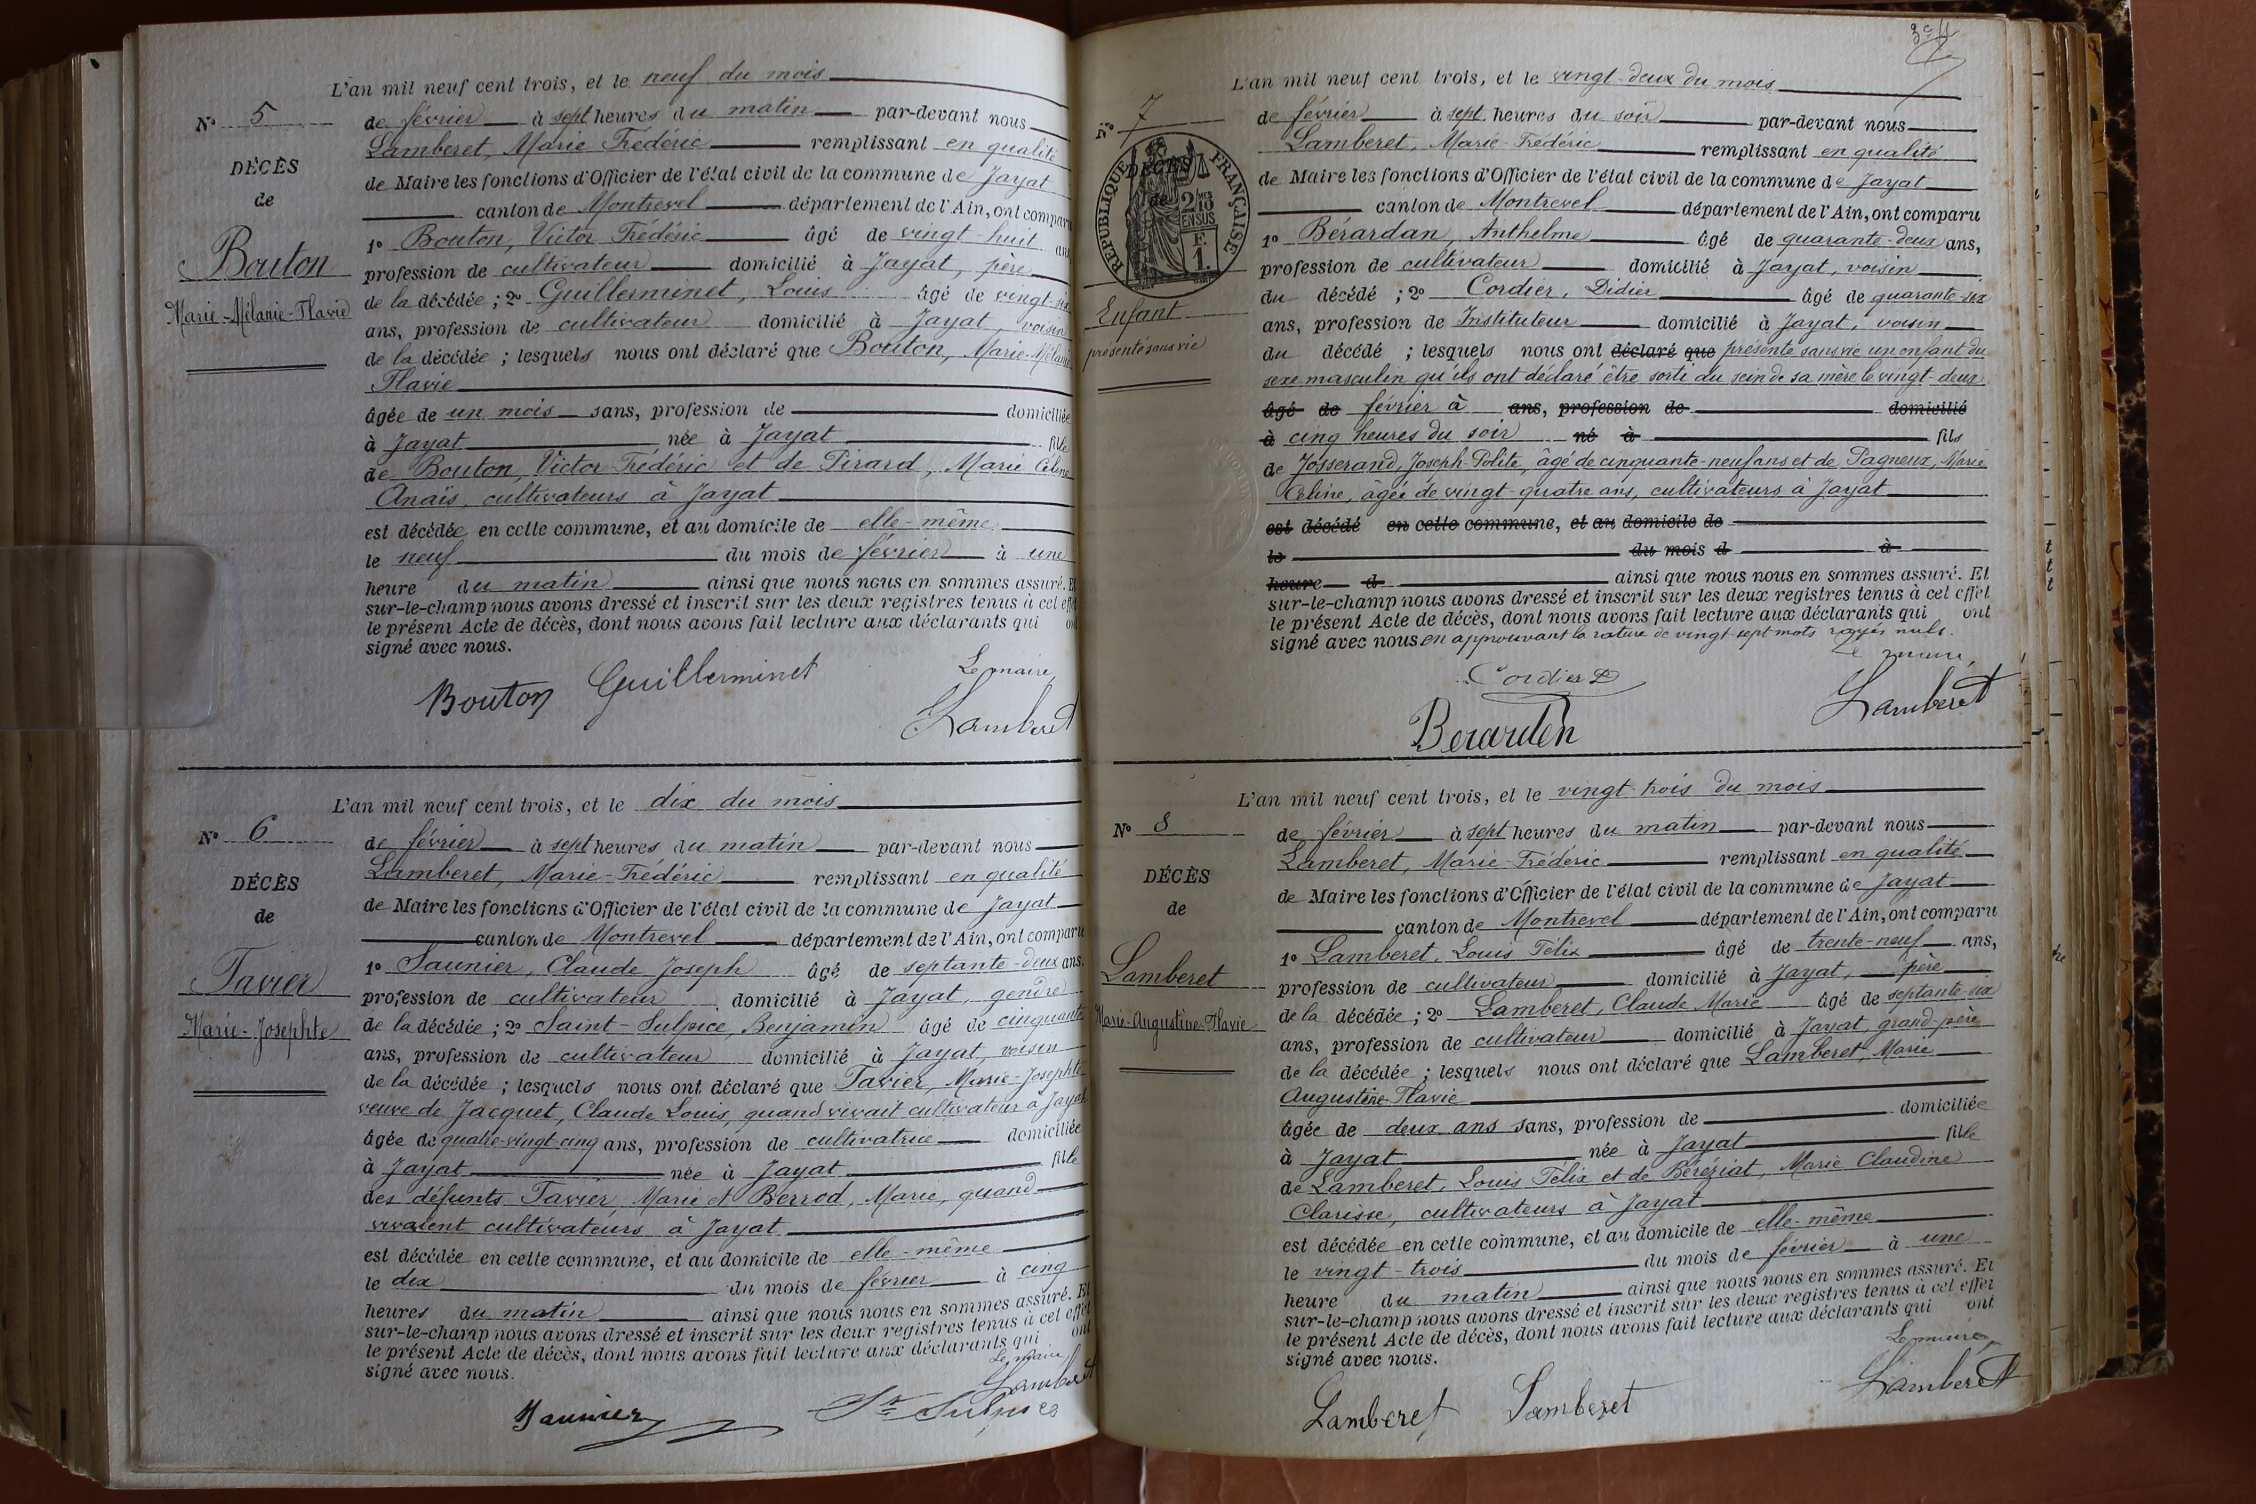 L'an mil neuf cent trois, et le neuf du mois
N° 5
de février à sept heures du matin par-devant nous
Lamberet, Marie Frédéric remplissant en qualité
DÉCÈS
de Maire les fonctions d'Officier de l'état civil de la commune de Jayat
de
canton de Montrevel département de l'Ain, ont comparu
1° Bouton, Victor Frédéric âgé de vingt-huit ans
Bouton
profession de cultivateur domicilié à Jayat, père
Marie-Mélanie-Flavie
de la décédée ; 2° Guillerminet, Louis âgé de vingt-six
ans, profession de cultivateur domicilié à Jayat, voisin
de la décédée ; lesquels nous ont déclaré que Bouton, Marie-Mélanie
Flavie
âgée de un mois sans, profession de domiciliée
à Jayat née à Jayat fille
de Bouton, Victor Frédéric et de Pirard, Marie Céline
Anaïs, cultivateurs à Jayat
est décédée en cette commune, et au domicile de elle-même
le neuf du mois de février à une
heure du matin ainsi que nous nous en sommes assuré. Et
sur-le-champ nous avons dressé et inscrit sur les deux registres tenus à cet effet
le présent Acte de décès, dont nous avons fait lecture aux déclarants qui ont
signé avec nous.
Le maire,
Bouton Guillerminet Lamberet
L'an mil neuf cent trois, et le dix du mois
N° 6
de février à sept heures du matin par-devant nous
Lamberet, Marie-Frédéric remplissant en qualité
DÉCÈS
de Maire les fonctions d'Officier de l'état civil de la commune de Jayat
de
canton de Montrevel département de l'Ain, ont comparu
1° Saunier, Claude Joseph âgé de septante-deux ans.
Tavier
profession de cultivateur domicilié à Jayat, gendre
Marie-Josephte
de la décédée ; 2° Saint-Sulpice, Benjamin âgé de cinquante
ans, profession de cultivateur domicilié à Jayat, voisin
de la décédée ; lesquels nous ont déclaré que Tavier, Marie-Josephte
veuve de Jacquet, Claude Louis, quand vivait cultivateur à Jayat
âgée de quatre-vingt-cinq ans, profession de cultivatrice domiciliée
à Jayat née à Jayat fille
des défunts Tavier, Marie et Berrod, Marie, quand
vivaient cultivateurs à Jayat
est décédée en cette commune, et au domicile de elle-même
le dix du mois de février à cinq
heures du matin ainsi que nous nous en sommes assuré. Et
sur-le-champ nous avons dressé et inscrit sur les deux registres tenus à cet effet
le présent Acte de décès, dont nous avons fait lecture aux déclarants qui ont
signé avec nous.
Le maire
Lamberet
Saunier St Sulpice
L'an mil neuf cent trois, et le vingt-deux du mois
N° 7
de février à sept heures du soir par-devant nous
Lamberet, Marie-Frédéric remplissant en qualité
DÉCÈS
RÉPUBLIQUE FRANÇAISE
de Maire les fonctions d'Officier de l'état civil de la commune de Jayat
de
2/10 EN SUS
canton de Montrevel département de l'Ain, ont comparu
F. 1.
1° Bérardan, Anthelme âgé de quarante-deux ans,
profession de cultivateur domicilié à Jayat, voisin
du décédé ; 2° Cordier, Didier âgé de quarante-six
Enfant
ans, profession de Instituteur domicilié à Jayat, voisin
présenté sans vie
du décédé ; lesquels nous ont déclaré que présenté sans vie un enfant du
sexe masculin qu'ils ont déclaré être sorti du sein de sa mère le vingt-deux
âgé de février à ans, profession de domicilié
à cinq heures du soir né à fils
de Josserand, Joseph-Polite, âgé de cinquante-neuf ans et de Pagneux, Marie
Céline, âgée de vingt-quatre ans, cultivateurs à Jayat
est décédé en cette commune, et au domicile de
le du mois d à
heure d ainsi que nous nous en sommes assuré. Et
sur-le-champ nous avons dressé et inscrit sur les deux registres tenus à cet effet
le présent Acte de décès, dont nous avons fait lecture aux déclarants qui ont
signé avec nous en approuvant la rature de vingt-sept mots rayés nuls.
Le maire,
Cordier D Lamberet
Berarden
L'an mil neuf cent trois, et le vingt-trois du mois
N° 8
de février à sept heures du matin par-devant nous
Lamberet, Marie-Frédéric remplissant en qualité
DÉCÈS
de Maire les fonctions d'Officier de l'état civil de la commune de Jayat
de
canton de Montrevel département de l'Ain, ont comparu
1° Lamberet, Louis Félix âgé de trente-neuf ans,
Lamberet
profession de cultivateur domicilié à Jayat, père
Marie-Augustine-Flavie
de la décédée ; 2° Lamberet, Claude Marie âgé de septante-six
ans, profession de cultivateur domicilié à Jayat, grand-père
de la décédée ; lesquels nous ont déclaré que Lamberet, Marie
Augustine-Flavie
âgée de deux ans sans, profession de domiciliée
à Jayat née à Jayat fille
de Lamberet, Louis Félix et de Béréziat, Marie Claudine
Clarisse, cultivateurs à Jayat
est décédée en cette commune, et au domicile de elle-même
le vingt-trois du mois de février à une
heure du matin ainsi que nous nous en sommes assuré. Et
sur-le-champ nous avons dressé et inscrit sur les deux registres tenus à cet effet
le présent Acte de décès, dont nous avons fait lecture aux déclarants qui ont
signé avec nous.
Le maire,
Lamberet Lamberet Lamberet